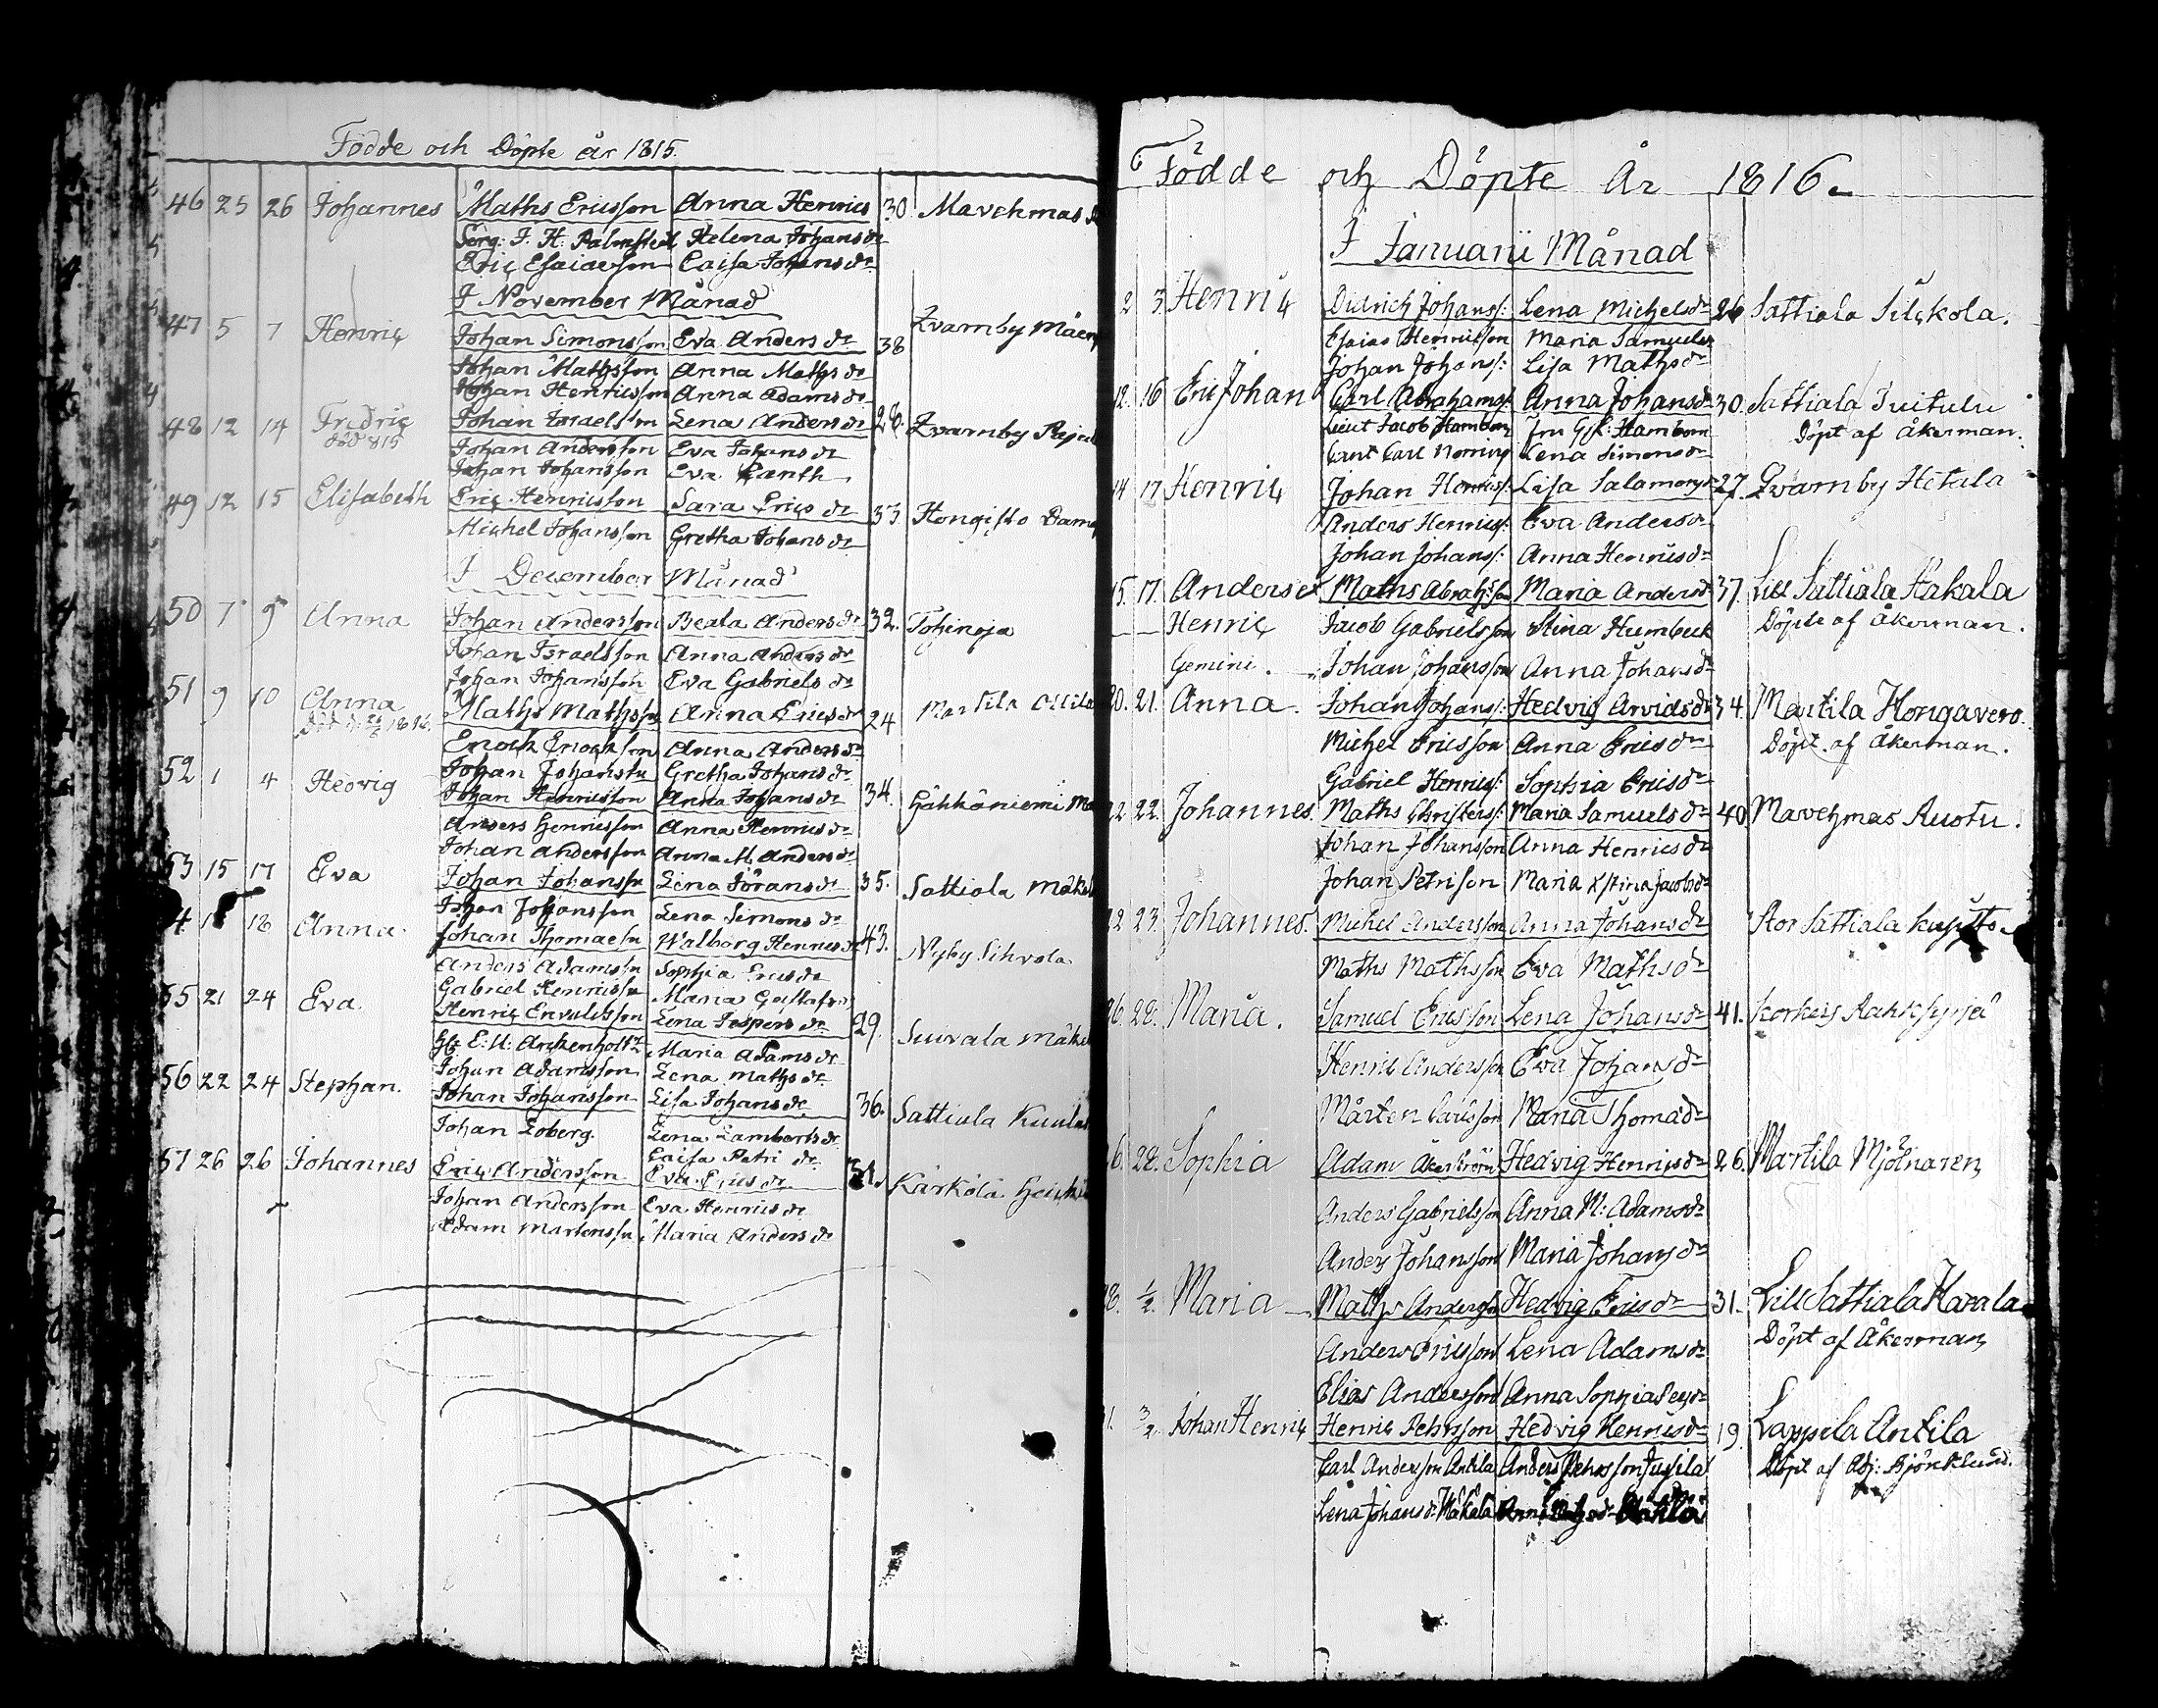 Födde och Döpte år 1815.
46 25 26 Johannes Maths Ericsson Anna Henrics 30. Mavehmas
Serg: J. H. Palmstedt Helena Johans dr
Eric Esaiaesson Caisa Johans dr
I November Månad
47 5 7 Henric Johan Simonsson Eva Anders dr 38 Kvarnby
Johan Mathsson Anna Maths dr
Johan Henricsson Anna Adams dr
48 12 14 Fredric Johan Israelsson Lena Anders dr 28. Kvarnby
död 1815 Johan Andersson Eva Johans dr
Johan Johansson Eva
49 12 15 Elisabeth Eric Henricsson Sara Erics dr 33 Hongisto
Michel Johansson Gretha Johans dr
I December Månad
50 7 9 Anna Johan Andersson Beata Anders dr 32. Tohinoja
Johan Israelsson Anna Anders dr
Johan Johansson Eva Gabriels dr
51 9 10 Anna Maths Mathsson Anna Erics dr 24 Martila
Enoch Enochsson Anna Anders dr
Johan Johanssn Gretha Johans dr
52 1 4 Hedvig Johan Henricsson Anna Johans dr 34.
Anders Henricsson Anna Henrics dr
Johan Andersson Anna M. Anders dr
53 15 17 Eva Johan Johanssn Lena Jörans dr 35. Sattiala
Johan Johansson Lena Simons dr
4 18 Anna. Johan Thomaesn Walborg Henrics dr 43. Nyby Sihvola
Anders Adamssn Sophia Erics dr
Gabriel Henricssn Maria Gustafs
55 21 24 Eva. Henric Envaldsson Lena Jespers dr 29. Suivala
E: U: Arckenholtz Maria Adams dr
Johan Adamsson Lena Maths dr
56 22 24 Stephan. Johan Johansson Lisa Johans dr 36. Sattiala
Johan Loberg. Lena Lamberts dr
Caisa Petri dr
57 26 26 Johannes Eric Andersson Eva Erics dr 31. Kärkölä
Johan Andersson Eva Henrics dr
Adam Martenssn Maria Anders dr
Födde och Döpte År 1816.
I Januarii Månad
2 3. Henric Didrich Johanss: Lena Michels dr 26 Sattiala Silckola.
Esaias Henricsson Maria Samuels
Johan Johanss: Lisa Maths dr
12. 16 Eric Johan Carl Abrahamss Anna Johans dr 30. Sattiala Tuitulu
Lieut Jacob Hamborn Fru Hamborn Döpt af Åkerman.
Carl Lena Simons dr
14 17 Henric Johan Henricss: Lisa Salamons dr 27. Kvarnby Hetula
Anders Henricss: Eva Anders dr
Johan Johanss: Anna Henrics dr
15. 17. Anders et Maths Abrah:sson Maria Anders dr 37. Lill Sattiala Hakala
Henric Jacob Gabrielsson Stina Humbeck Döpte af Åkerman.
Gemini. Johan Johansson Anna Johans dr
20. 21. Anna. Johan Johanss: Hedvig Arvids dr 34. Martila Hongavero.
Michel Ericsson Anna Erics dr Döpt af Åkerman.
Gabriel Henricss: Sophia Erics dr
22 22. Johannes. Maths Christerss: Maria Samuels dr 40 Mavehmas Ruotu.
Johan Johansson Anna Henrics dr
Johan Petrison Maria Xstina Jacobs dr
22 23. Johannes. Michel Andersson Anna Johans dr Stor Sattiala
Maths Mathsson Eva Maths dr
26. 28. Maria. Samuel Ericsson Lena Johans dr 41.
Henric Andersson Eva Johans dr
Mårten Carlsson Maria Thoma dr
6. 28. Sophia Adam Åkerström Hedvig Henrics dr 26. Martila Mjölnaren
Anders Gabrielsson Anna M: Adams dr
Anders Johansson Maria Johans dr
28. 1/2. Maria Maths Andersson Hedvig Erics dr 31. Lill Sattiala
Anders Ericsson Lena Adams dr Döpt af Åkerman
Elias Andersson Anna Sophia
31. 3/2 Johan Henric Henric Pehrsson Hedvig Henrics dr 19. Lappila Antila
Carl Andersson Antila Anders Pehrsson Jussila Döpt af Adj: Björklund.
Lena Johans d. Häkälä Anna